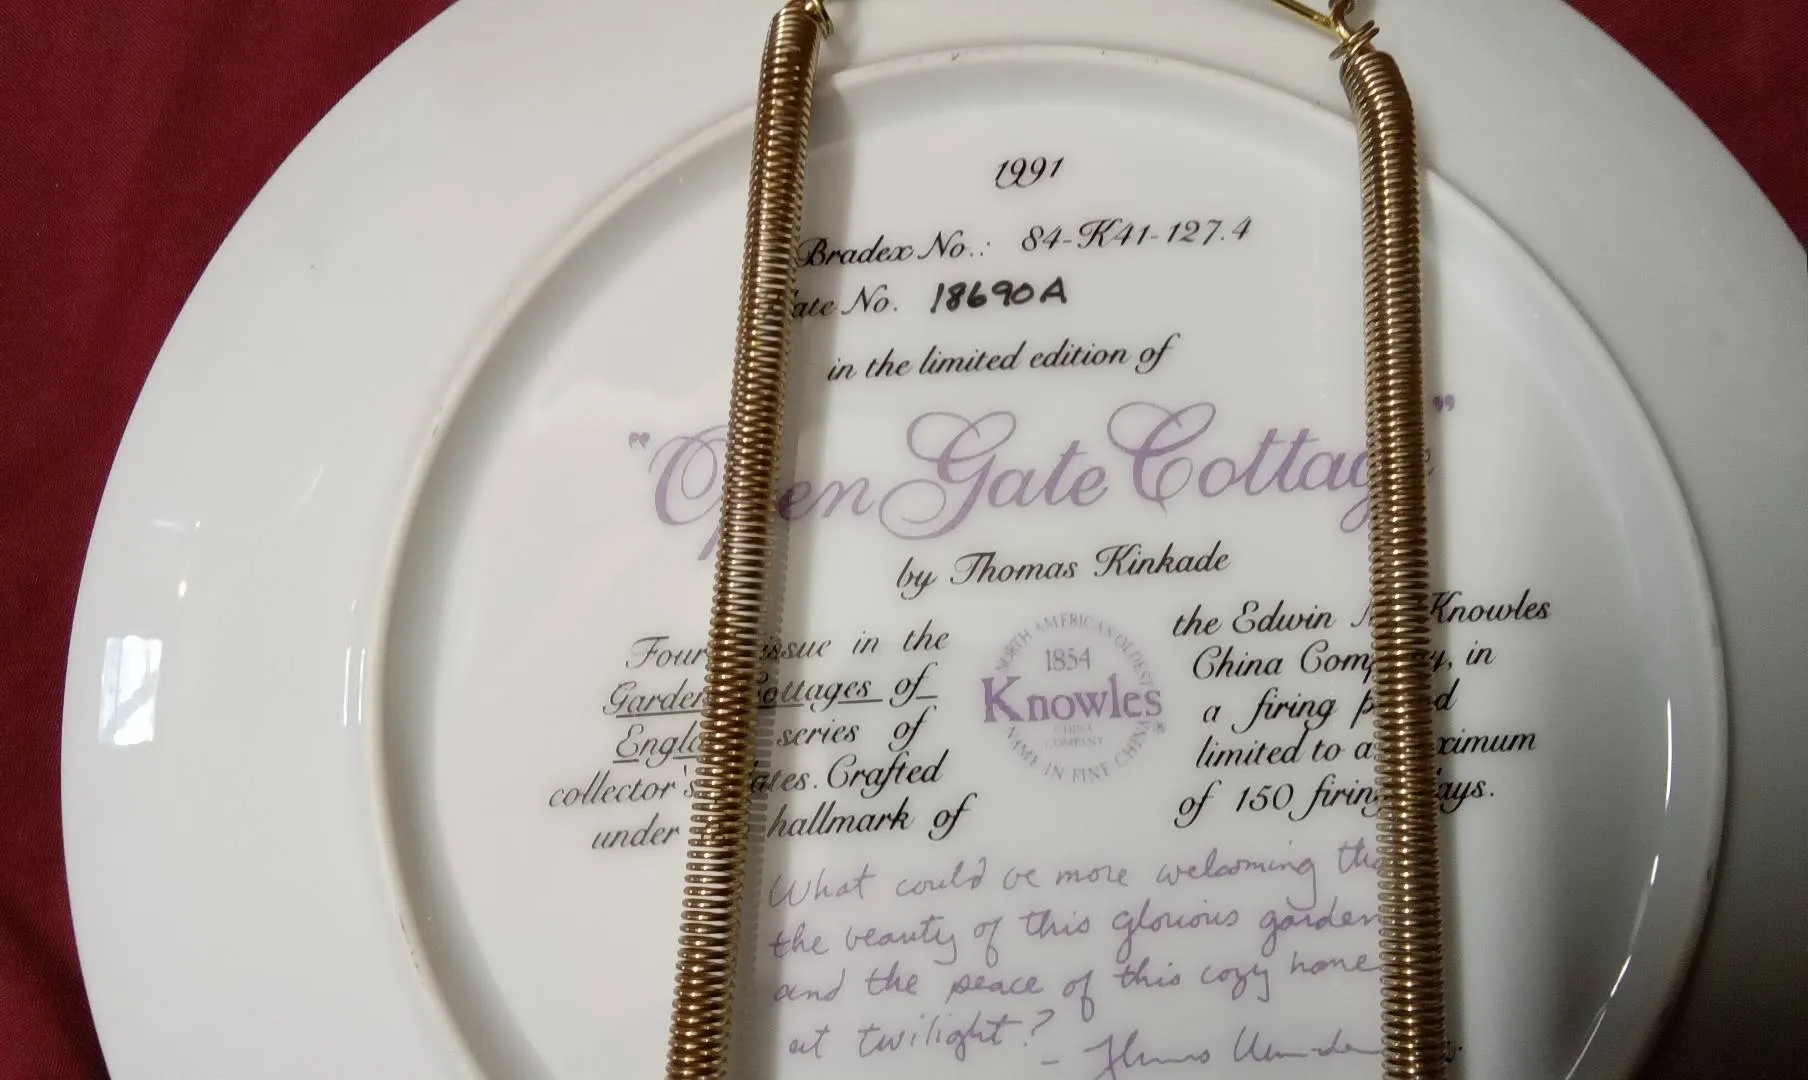 1991
Bradex No.: 84-K41-127.4
No. 18690A
in the limited edition of
"Open Gate Cottage"
by Thomas Kinkade
issue in the
Garden Cottages of
England series of
collector's plates. Crafted
under hallmark of
NORTH AMERICA'S OLDEST
1854
Knowles
CHINA
COMPANY
NAME IN FINE CHINA
the Edwin Knowles
China Company, in
a firing period
limited to a maximum
of 150 firing days.
What could be more welcoming than
the beauty of this glorious garden
and the peace of this cozy home
at twilight?